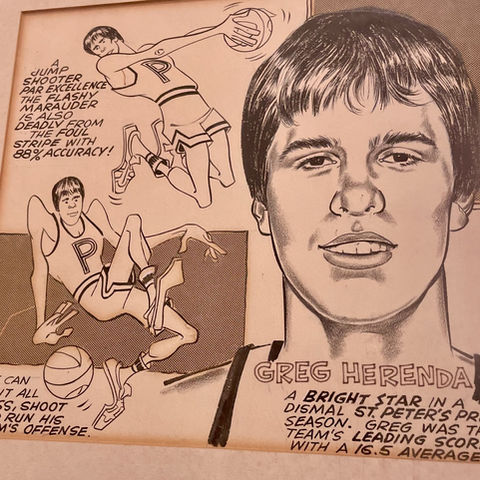 A
JUMP
SHOOTER
PAR EXCELLENCE
THE FLASHY
MARAUDER
IS ALSO
DEADLY FROM
THE FOUL
STRIPE WITH
88% ACCURACY!
P
P
CAN
ALL
SHOOT
RUN HIS
OFFENSE.
GREG HERENDA
A BRIGHT STAR IN A
DISMAL ST. PETER'S
SEASON. GREG WAS
TEAM'S LEADING
WITH A 16.5 AVERAGE